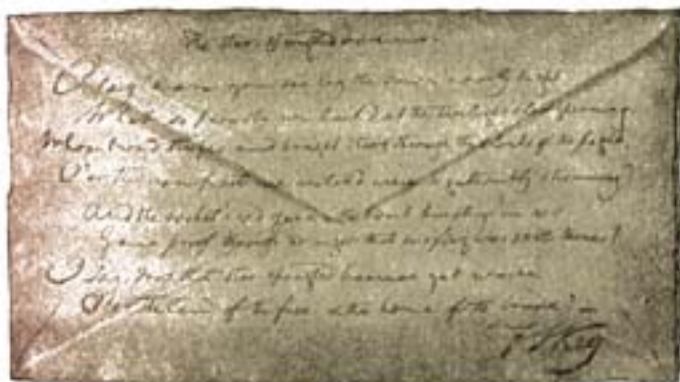 The star-spangled banner.
O say can you see by the dawn's early light
What so proudly we hail'd at the twilight's last gleaming
Whose broad stripes and bright stars through the clouds of the fight
O'er the ramparts we watch'd were so gallantly streaming?
And the rocket's red glare the bomb bursting in air
Gave proof through the night that our flag was still there?
O say, does that star spangled banner yet wave
O'er the land of the free & the home of the brave?
F S Key